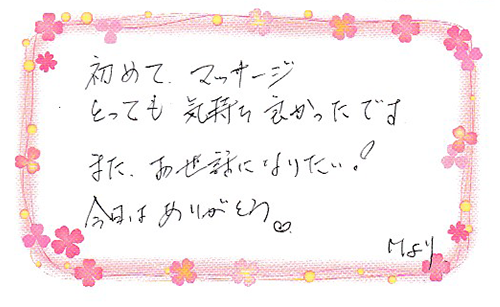 初めて、マッサージ
とっても 気持ち 良かったです
また、お世話になりたい!
今日は ありがとう♡
Mより